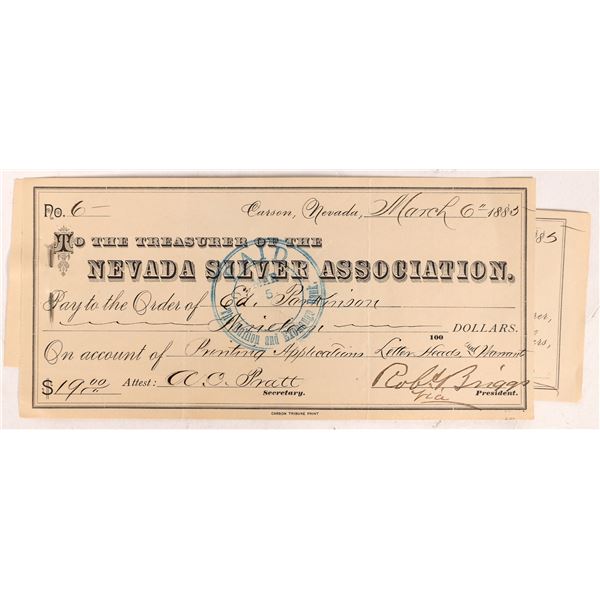 No. 6 Carson, Nevada, March 6th 1885
TO THE TREASURER OF THE
NEVADA SILVER ASSOCIATION.
Pay to the Order of Ed. Parkinson
Nineteen 100 DOLLARS.
On account of Printing Applications Letter Heads and Warrants
$19.00 Attest: A. O. Pratt Robt Briggs
Secretary. President.
CARSON TRIBUNE PRINT
PAID
Bullion and Exchange Bank